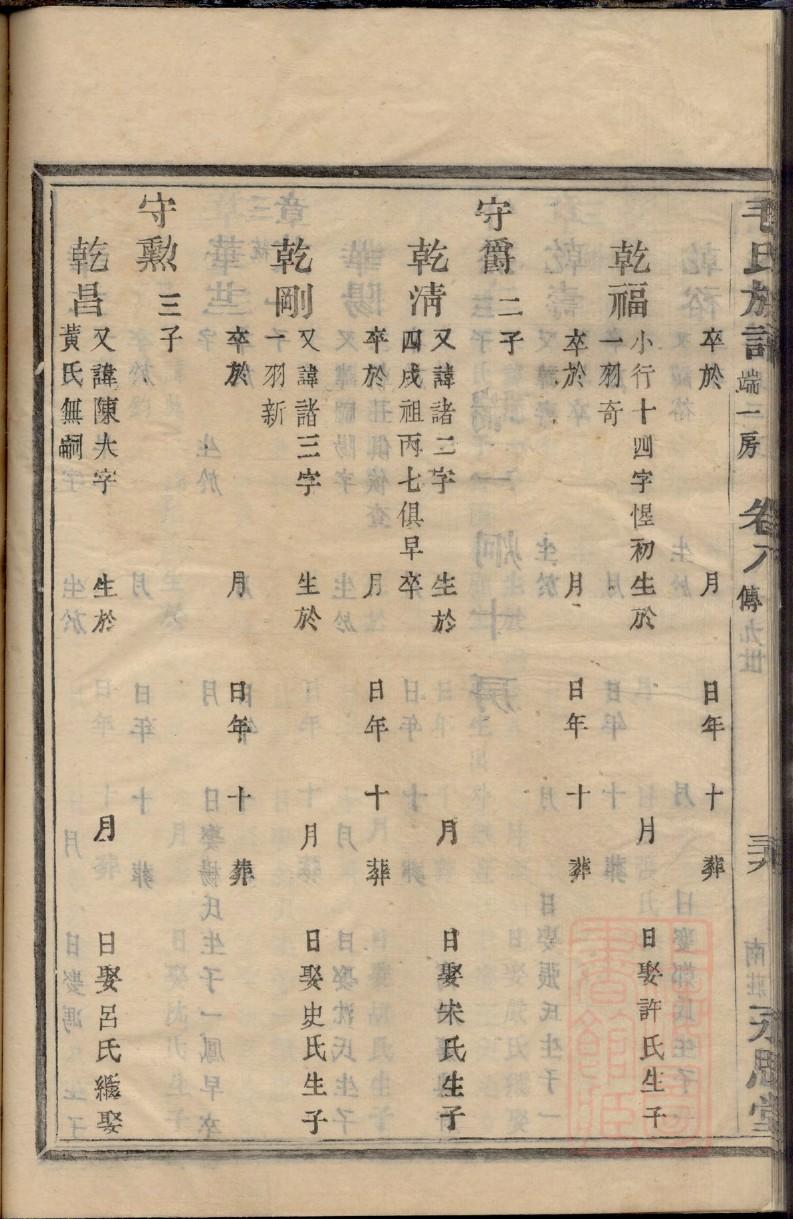 毛氏族譜 端一房 卷八 傳九世 三六 南莊 永思堂
卒於 月 日年 十 葬
乾福 小行十四字惺初生於 月 日娶許氏生子
一羽奇
卒於 月 日年 十 葬
守爵 二子
乾清 又諱諸二字 生於 月 日娶宋氏生子
四戌祖丙七俱早卒
卒於 月 日年 十 葬
乾剛 又諱諸三字 生於 月 日娶史氏生子
一羽新
卒於 月 日年 十 葬
守勲 三子
乾昌 又諱陳大字 生於 月 日娶呂氏繼娶
黃氏無嗣